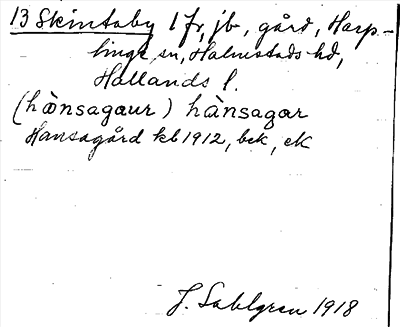 13 Skintaby 1 fr, jb, gård, Harp-
linge sn, Halmstads hd,
Hallands l.
(hὼnsagaur) hànsagar
Hansagård kb 1912, bek, eK
J. Sahlgren 1918